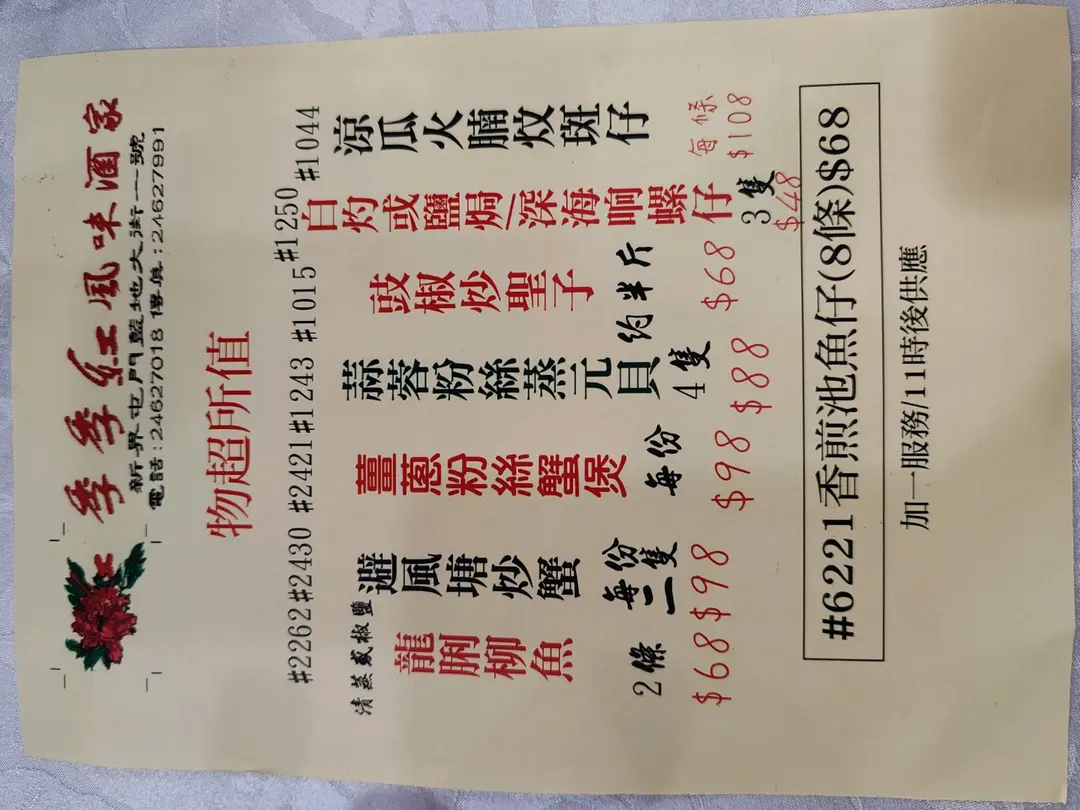 季季紅風味酒家
新界屯門藍地大街一一號
電話:24627018 傳真:24627991
物超所值
#2262 #2430 #2421 #1243 #1015 #1250 #1044
清蒸或椒鹽
龍脷柳魚
2條
$68
避風塘炒蟹
每份
二隻
$98
薑蔥粉絲蟹煲
每份
$98
蒜蓉粉絲蒸元貝
4隻
$88
豉椒炒聖子
約半斤
$68
白灼或鹽焗/深海响螺仔
3隻
$48
涼瓜火腩炆斑仔
每條
$108
#6221香煎池魚仔(8條)$68
加一服務/11時後供應